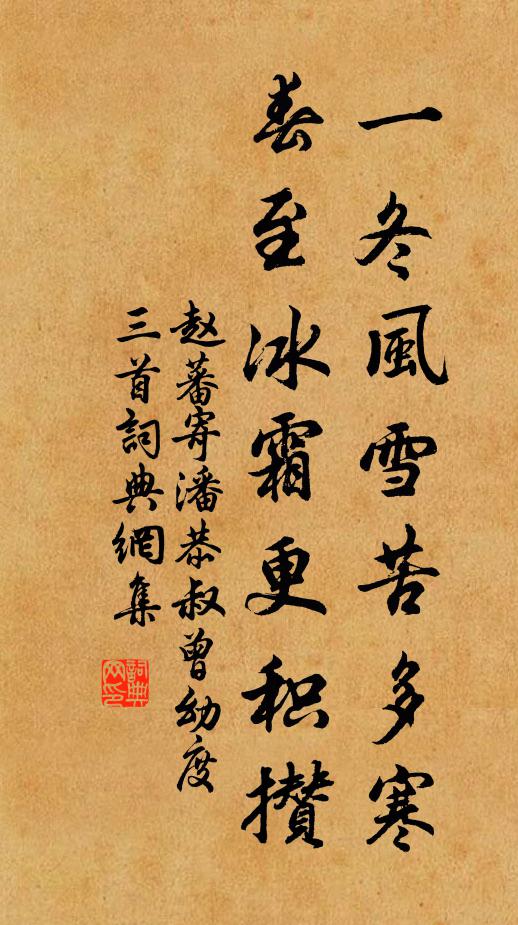 一冬風雪苦多寒
春至冰霜更积攅
赵蕃寄潘恭叔曾幼度
三首詞典網集
詞典网印